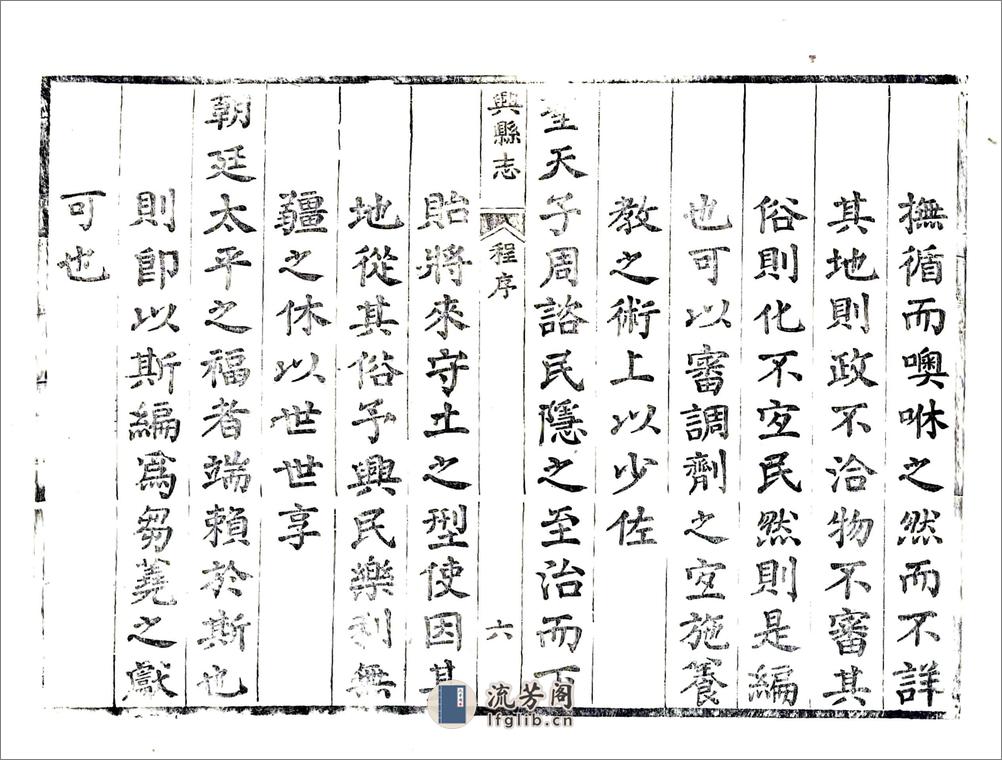 撫循而噢咻之然而不詳
其地則政不洽物不審其
俗則化不宜民然則是編
也可以審調劑之宜施養
教之術上以少佐
聖天子周諮民隱之至治而下
興縣志
程序
六
貽將來守土之型使因其
地從其俗予興民樂利無
疆之休以世世享
朝廷太平之福者端賴於斯也
則卽以斯編爲芻蕘之獻
可也
流芳阁
lfglib.cn